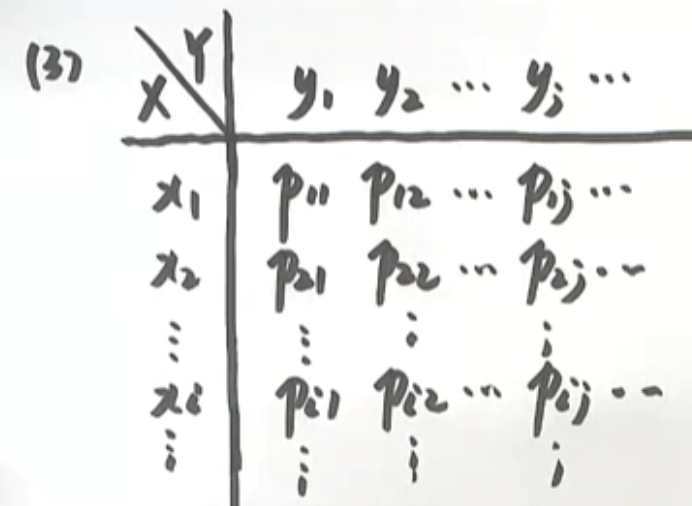 (3)
X Y y₁ y₂ ⋯ yⱼ ⋯
x₁ p₁₁ p₁₂ ⋯ p₁ⱼ ⋯
x₂ p₂₁ p₂₂ ⋯ p₂ⱼ ⋯
⋮ ⋮ ⋮ ⋮
xᵢ pᵢ₁ pᵢ₂ ⋯ pᵢⱼ ⋯
⋮ ⋮ ⋮ ⋮